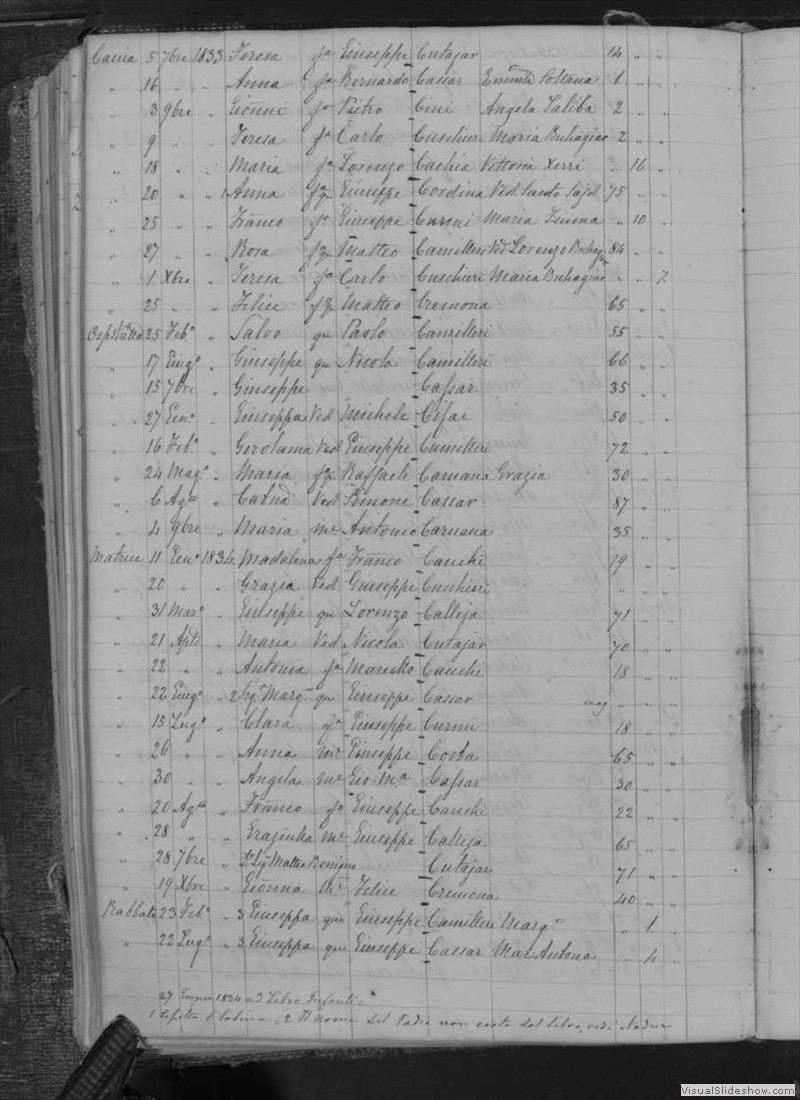 Caccia 5 7bre 1833 Teresa fa Giuseppe Cutajar 14 " "
" 16 " " Anna fa Bernardo Cassar Soltana 1 " "
" 3 9bre " Gionni fo Pietro Cini Angela Saliba 2 " "
" 9 " " Teresa fa Carlo Cuschieri Maria Buhagiar 2 " "
" 18 " " Maria fa Lorenzo Cachia Vittoria Xerri " 16 "
" 20 " " 1 Anna Giuseppe Cordina Ved Santo 75 " "
" 25 " " Franco fo Giuseppe Curmi Maria " 10 "
" 27 " " Rosa Matteo Camilleri Ved Lorenzo Buhagiar 84 " "
" 1 Xbre " Teresa fa Carlo Cuschieri Maria Buhagiar " " 7
" 25 " " Felice Matteo Cremona 65 " "
25 Febo " Salvo qu Paolo Camilleri 55 " "
" 17 Giugo " Giuseppe qu Nicola Camilleri 66 " "
" 15 7bre " Giuseppe Cassar 35 " "
" 27 Geno " Giuseppa Ved Michele 50 " "
" 16 Febo " Gerolama Ved Giuseppe Camilleri 72 " "
" 24 Mago " Maria Raffaele Caruana Grazia 30 " "
" 6 Ago " Catna Ved Simone Cassar 87 " "
" 4 9bre " Maria me Antonio Caruana 35 " "
Matrice 11 Geno 1834 Madalena fa Franco Cauchi 19 " "
" 20 " " Grazia Ved Giuseppe Cuschieri " " "
" 31 Maro " Giuseppe qu Lorenzo Calleja 71 " "
" 21 Aple " Maria Ved Nicola Cutajar 70 " "
" 22 " " Antonia fa Marcello Cauchi 18 " "
" 22 Giugo " 2 Sigr Marq qu Giuseppe Cassar mag " " "
" 15 Lugo " Clara fa Giuseppe Curmi 18 " "
" 26 " " Anna me Giuseppe Costa 65 " "
" 30 " " Angela me Gio Ma Cassar 30 " "
" 20 Ago " Franco fo Giuseppe Cauchi 22 " "
" 28 " " Graziulla me Giuseppe Calleja 65 " "
" 28 7bre " Dr Sigr Matteo Benigno Cutajar 71 " "
" 19 Xbre " Gionna me Felice Cremona 40 " "
Rabbato 23 Febo " 3 Giuseppa qu Giuseppe Camilleri Marga " 1 "
" 22 Lugo " 3 Giuseppa qu Giuseppe Cassar Mar Antona " 4 "
27 Giugno 1834 = 3 Libro Infanti =
1 = 2 Il nome del Padre non costa dal libro, vedi
VisualSlideshow.com